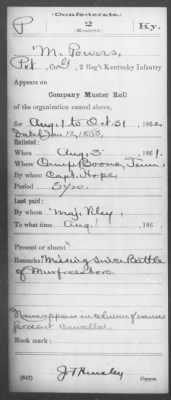 (Confederate.)
P 2 Ky.
(Mounted)
M. Powers,
Pvt., Co. G, 2 Reg't Kentucky Infantry
Appears on
Company Muster Roll
of the organization named above,
for Aug. 1 to Oct. 31, 1862.
Dated Jan 12, 1863.
Enlisted:
When Aug. 5, 1861.
Where Camp Boone, Tenn.
By whom Capt. Hope,
Period 3 yrs.
Last paid:
By whom Maj. Viley,
To what time Aug. 1, 186
Present or absent
Remarks: Missing since Battle
of Murfreesboro.
Name appears in column of names
present
Book mark:
(642) Copyist.